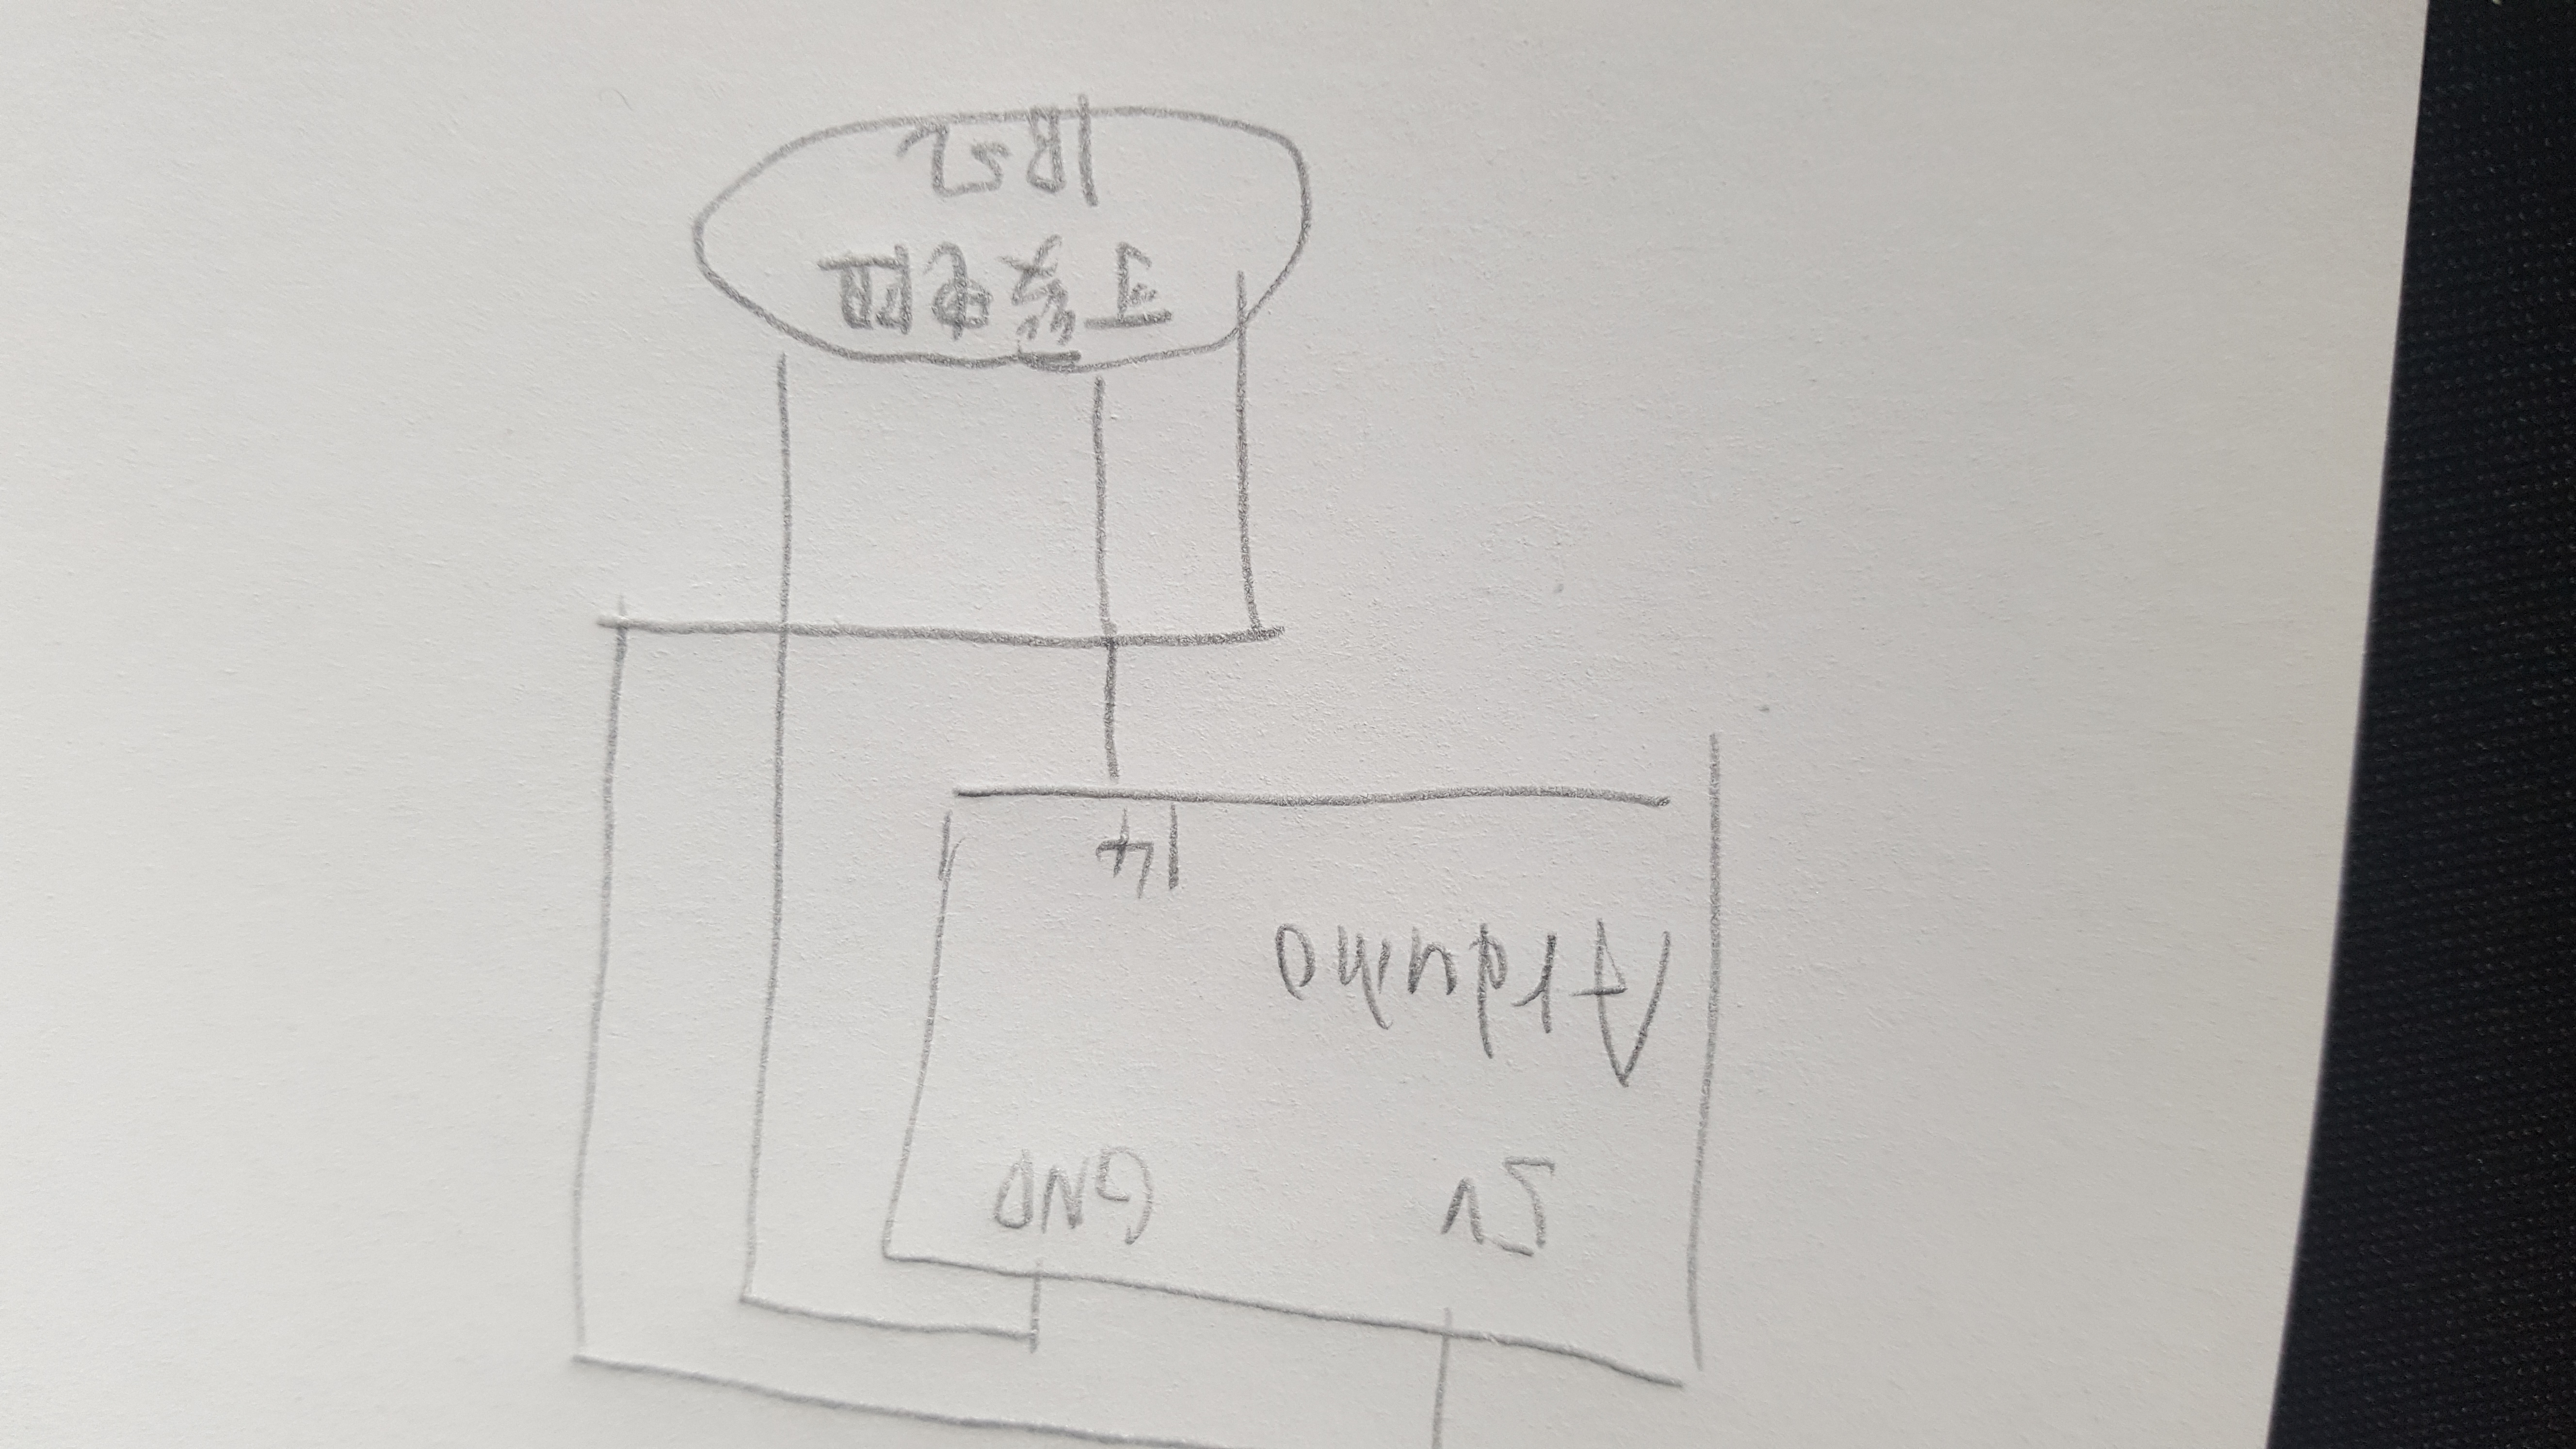 5V GND
Arduino
14
可变电阻